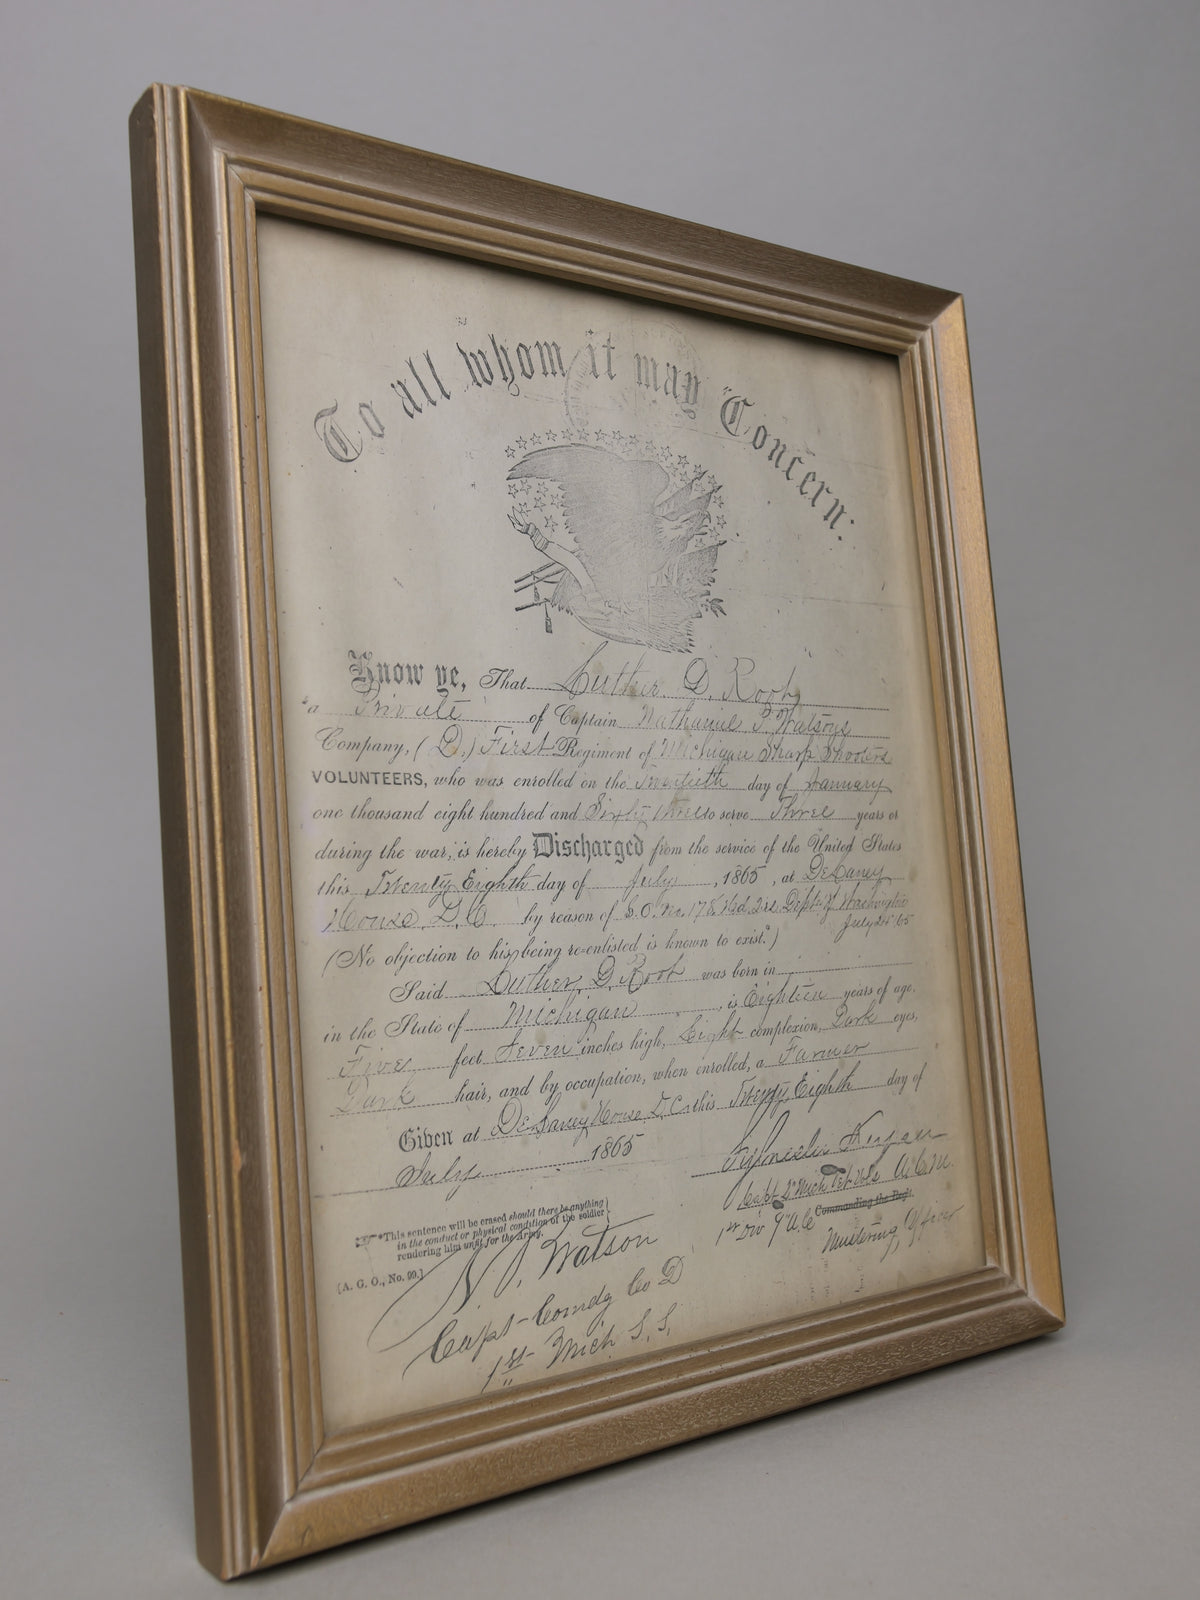 To all whom it may Concern:
Know ye, That Luther D. Root
a Private of Captain Nathaniel P. Watsons
Company, (D.) First Regiment of Michigan Sharp Shooters
VOLUNTEERS, who was enrolled on the Twentieth day of January
one thousand eight hundred and Sixty three to serve Three years or
during the war, is hereby Discharged from the service of the United States
this Twenty Eighth day of July, 1865, at DeLaney
House, D.C. by reason of G.O. No. 178 Hd. Qrs. Dept of Washington
July 24 '65
(No objection to his being re-enlisted is known to exist.*)
Said Luther D. Root was born in
in the State of Michigan, is Eighteen years of age,
Five feet Seven inches high, Light complexion, Dark eyes,
Dark hair, and by occupation, when enrolled, a Farmer
Given at DeLaney House D.C. this Twenty Eighth day of
July 1865
Capt 2d Mich Vet Vols A.C.M.
1st Div 9" A.C Commanding the Reg't.
Mustering Officer
*This sentence will be erased should there be anything
in the conduct or physical condition of the soldier
rendering him unfit for the Army.
[A. G. O., No. 99.]
N. P. Watson
Capt- Comdg Co D
1st Mich S. S.